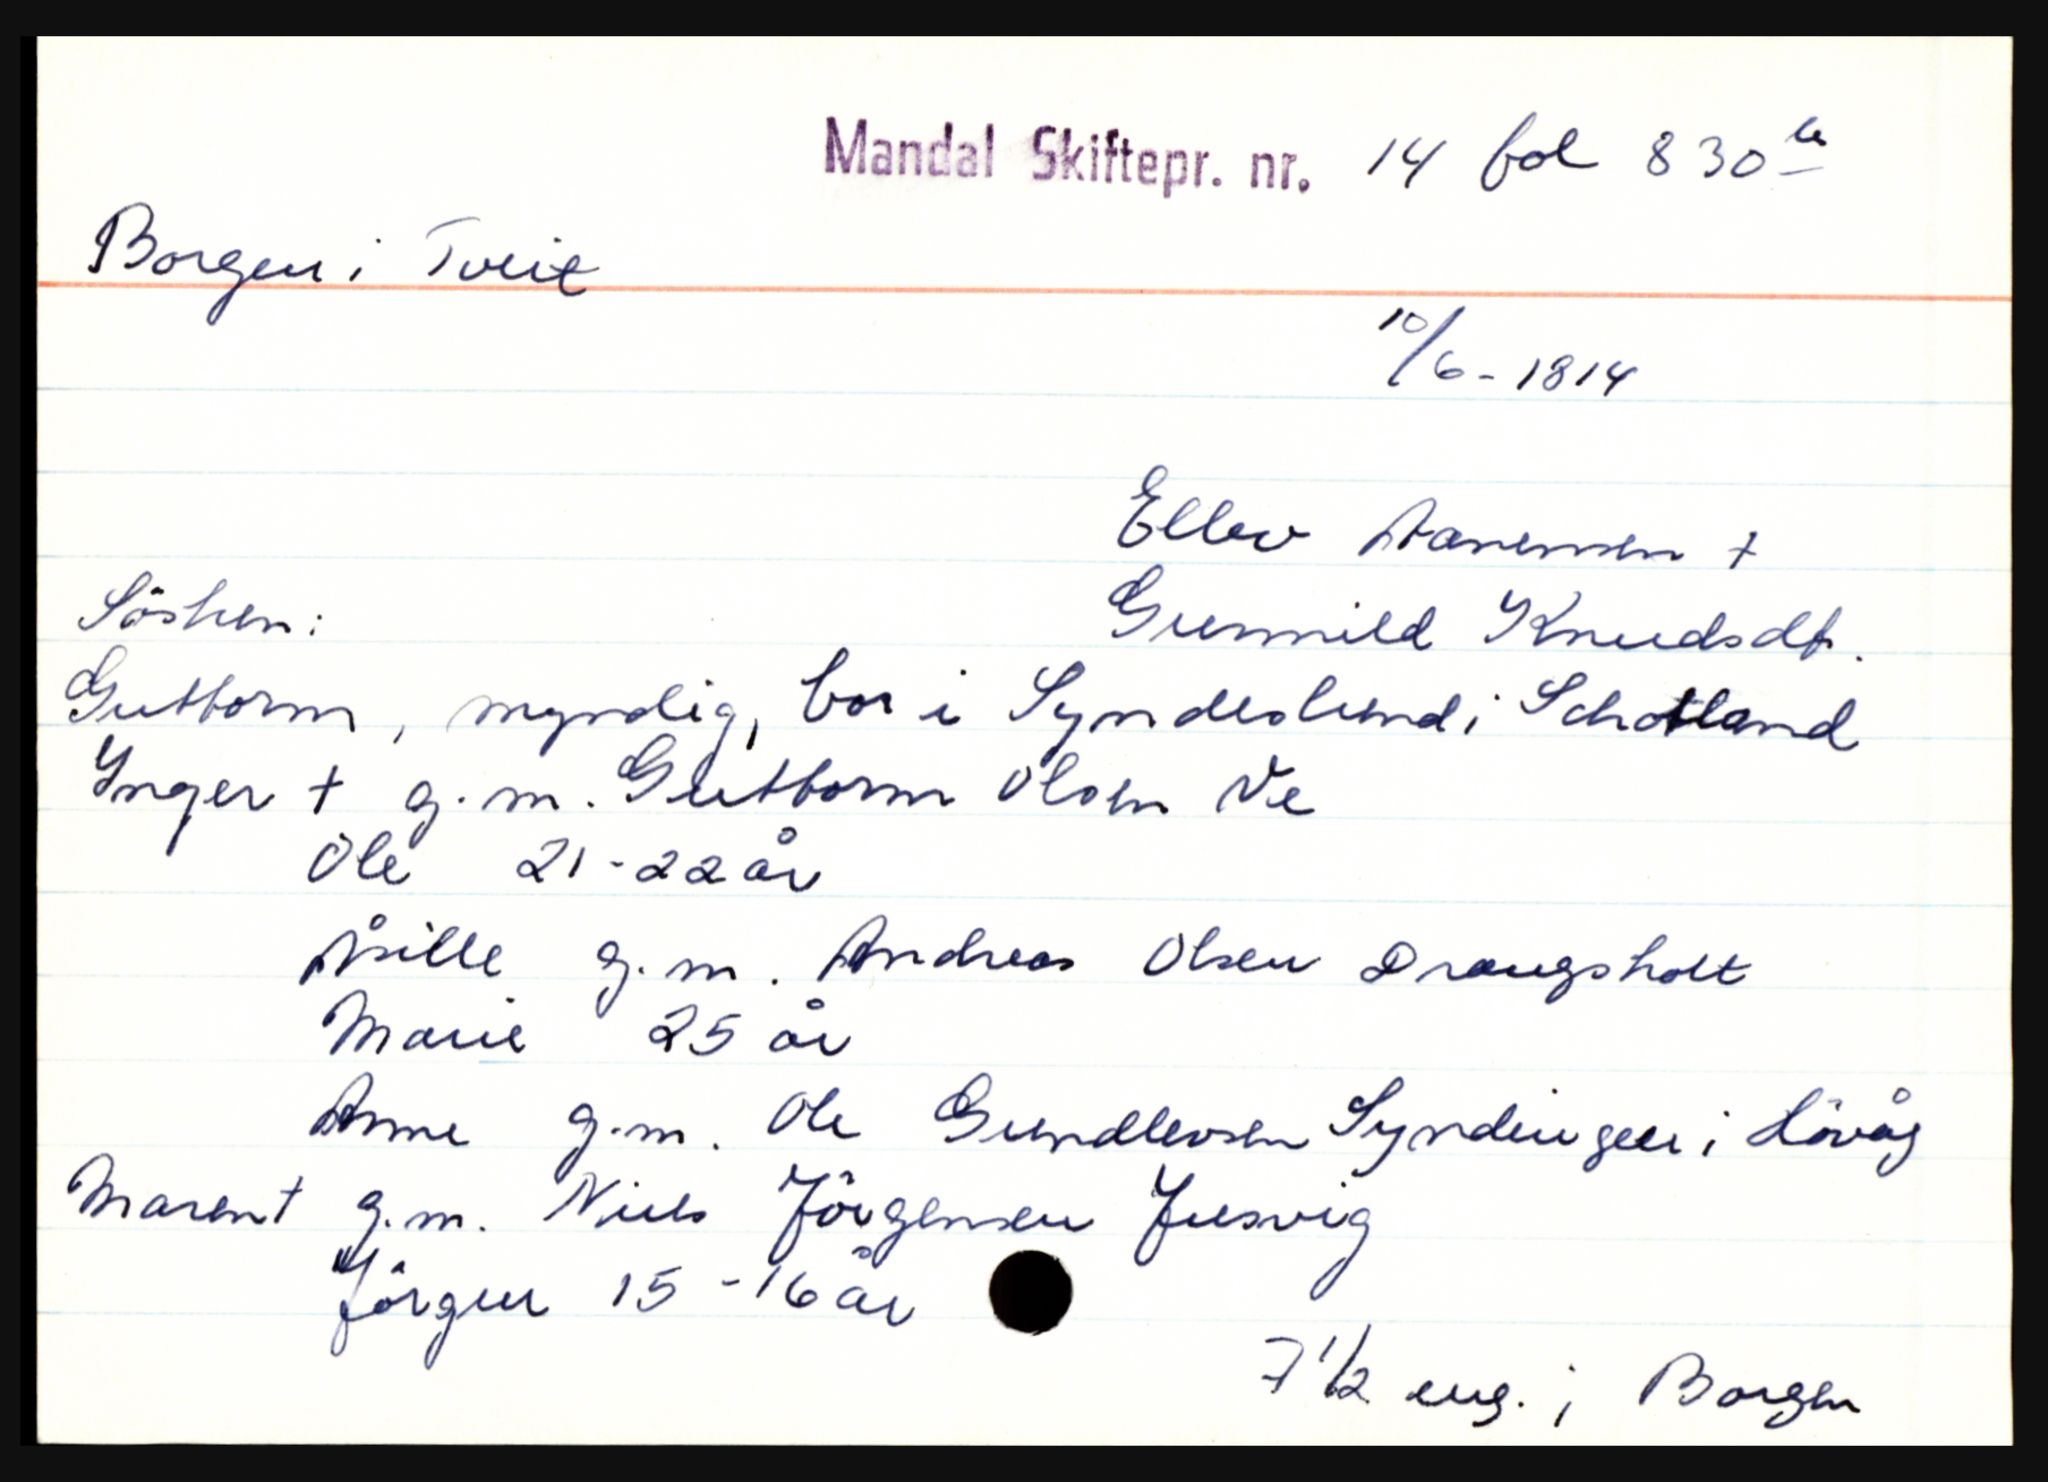 Mandal Skiftepr. nr. 14 fol 830 b
Borgen i Tveit
10/6 - 1814
Ellev Aanensen +
Søsken:
Gunnild Knudsdt.
Guttorm, myndig, bor i Synderlund i Schotland
Ynger + g.m. Guttorm Olsen Ve
Ole 21-22 år
Åsille g.m. Andreas Olsen Drangsholt
Marie 25 år
Anne g.m. Ole Gundlevsen Syndingen i Høvåg
Maren + g.m. Niels Jörgensen Justvig
Jörgen 15-16 år
7 1/2 eng. i Borgen